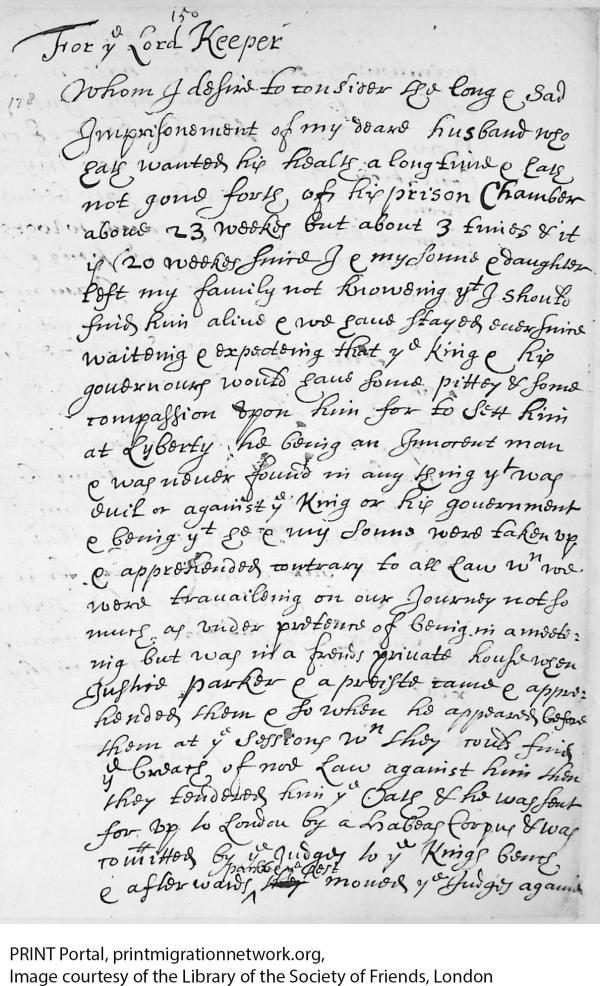 150
For yᵉ Lord Keeper
178
Whom I desire to consider the long & sad
Imprisonement of my deare husband who
hath wanted his health a longtime & hath
not gone forth of his prison Chamber
above 23 weekes but about 3 times & it
is (20 weekes since I & my sonne & daughter
left my family not knoweing yᵗ I should
find him alive & we have stayed ever since
waiteing & expecteing that yᵉ King & his
governours would have some pittey & some
compassion upon him for to sett him
at Lyberty he being an Innocent man
& was never found in any thing yᵗ was
evil or against yᵉ King or his government
& being yᵗ he & my sonne were taken up
& apprehended contrary to all Law wⁿ we
were travaileing on our Journey not so
much as under pretence of being in a meete:
ing but was in a frends private house when
Justice Parker & a preiste came & appre:
hended them & so when he appeared before
them at yᵉ Sessions wⁿ they could find
yᵉ breach of noe Law against him then
they tendered him yᵉ Oath & he was sent
for up to London by a Habeas Corpus & was
comitted by yᵉ Judges to yᵉ Kings bench
& afterwards moved yᵉ Judges againe
PRINT Portal, printmigrationnetwork.org,
Image courtesy of the Library of the Society of Friends, London